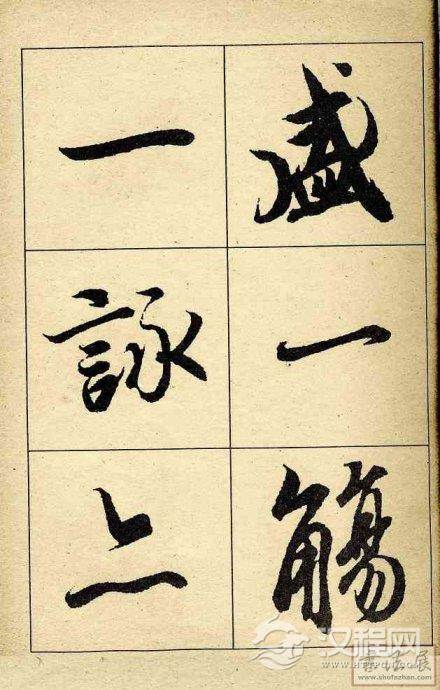 盛一觴
一詠亦
汉程网
www.shufazhan.com